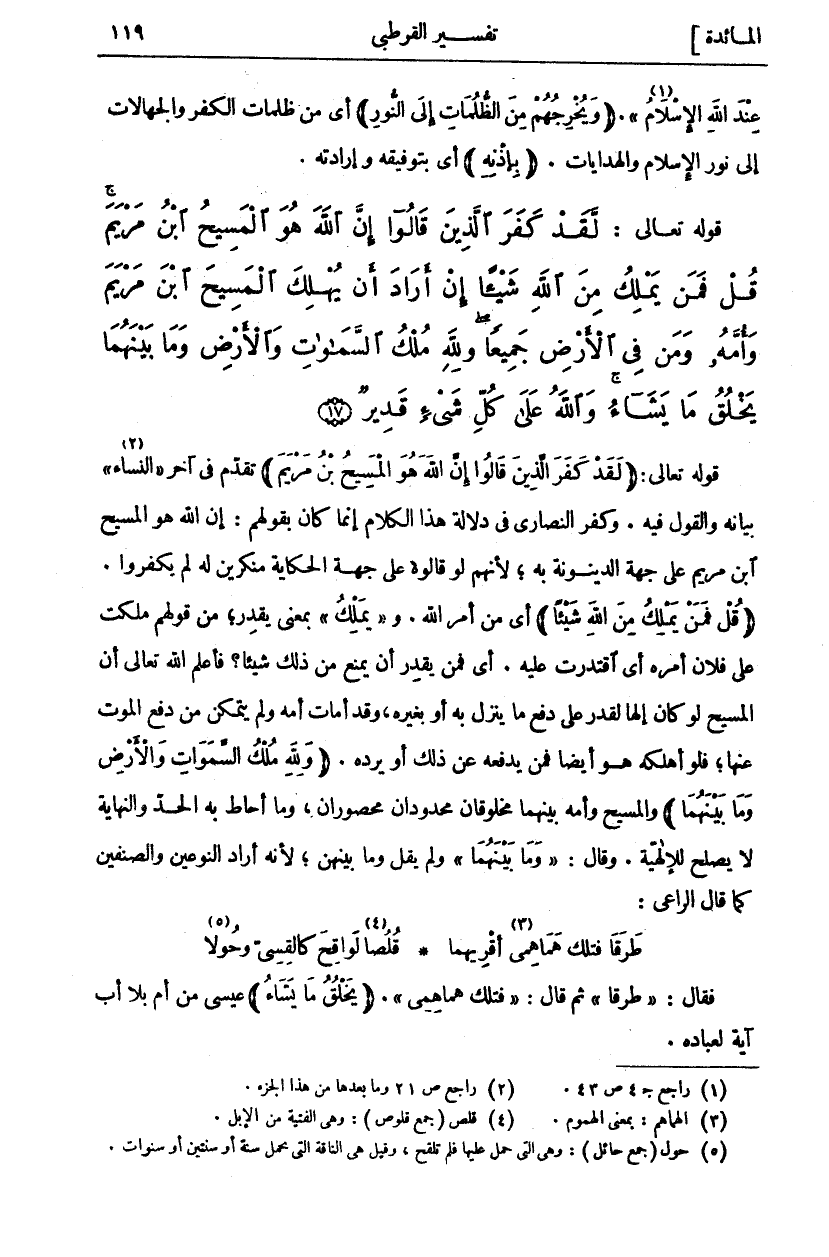 المائدة ] تفسير القرطبى ١١٩
عِنْدَ اللهِ الإِسْلَامُ(١) » . ﴿ وَيُخْرِجُهُمْ مِنَ الظُّلُمَاتِ إِلَى النُّورِ ﴾ أى من ظلمات الكفر والجهالات
إلى نور الإسلام والهدايات . ﴿ بِإِذْنِهِ ﴾ أى بتوفيقه و إرادته .
قوله تعالى : لَّقَدْ كَفَرَ ٱلَّذِينَ قَالُوٓا إِنَّ ٱللَّهَ هُوَ ٱلْمَسِيحُ ٱبْنُ مَرْيَمَ ۚ
قُلْ فَمَن يَمْلِكُ مِنَ ٱللَّهِ شَيْئًا إِنْ أَرَادَ أَن يُهْلِكَ ٱلْمَسِيحَ ٱبْنَ مَرْيَمَ
وَأُمَّهُۥ وَمَن فِى ٱلْأَرْضِ جَمِيعًا ۗ وَلِلَّهِ مُلْكُ ٱلسَّمَٰوَٰتِ وَٱلْأَرْضِ وَمَا بَيْنَهُمَا
يَخْلُقُ مَا يَشَآءُ ۚ وَٱللَّهُ عَلَىٰ كُلِّ شَىْءٍ قَدِيرٌ ١٧
قوله تعالى : ﴿ لَقَدْ كَفَرَ الَّذِينَ قَالُوا إِنَّ اللهَ هُوَ الْمَسِيحُ بْنُ مَرْيَمَ ﴾ تقدّم فى آخر «النساء»(٢)
بيانه والقول فيه . وكفر النصارى فى دلالة هذا الكلام إنما كان بقولهم : إن الله هو المسيح
آبن مريم على جهة الدينونة به ؛ لأنهم لو قالوه على جهة الحكاية منكرين له لم يكفروا .
﴿ قُلْ فَمَنْ يَمْلِكُ مِنَ اللهِ شَيْئًا ﴾ أى من أمر الله . و « يَمْلِكُ » بمعنى يقدر ؛ من قولهم ملكت
على فلان أمره أى آقتدرت عليه . أى فمن يقدر أن يمنع من ذلك شيئا؟ فأعلم الله تعالى أن
المسيح لو كان إلها لقدر على دفع ما ينزل به أو بغيره ، وقد أمات أمه ولم يتمكن من دفع الموت
عنها ؛ فلو أهلكه هو أيضا فمن يدفعه عن ذلك أو يرده . ﴿ وَلِلهِ مُلْكُ السَّمَوَاتِ وَالْأَرْضِ
وَمَا بَيْنَهُمَا ﴾ والمسيح وأمه بينهما مخلوقان محدودان محصوران ، وما أحاط به الحدّ والنهاية
لا يصلح للإلهية . وقال : « وَمَا بَيْنَهُمَا » ولم يقل وما بينهن ؛ لأنه أراد النوعين والصنفين
كما قال الراعى :
طَرَقَا فتلك هَمَاهِمِى(٣) أَقْرِيهما * قُلُصًا(٤) لَوَاقِحَ كالقِسِىّ وحُولَا(٥)
فقال : « طرقا » ثم قال : « فتلك هماهمى » . ﴿ يَخْلُقُ مَا يَشَاءُ ﴾ عيسى من أم بلا أب
آية لعباده .
(١) راجع جـ ٤ ص ٤٣ . (٢) راجع ص ٢١ وما بعدها من هذا الجزء .
(٣) الهماهم : بمعنى الهموم . (٤) قلص (جمع قلوص) : وهى الفتية من الإبل .
(٥) حول (جمع حائل) : وهى التى حمل عليها فلم تلقح ، وقيل هى الناقة التى تحمل سنة أو سنتين أو سنوات .